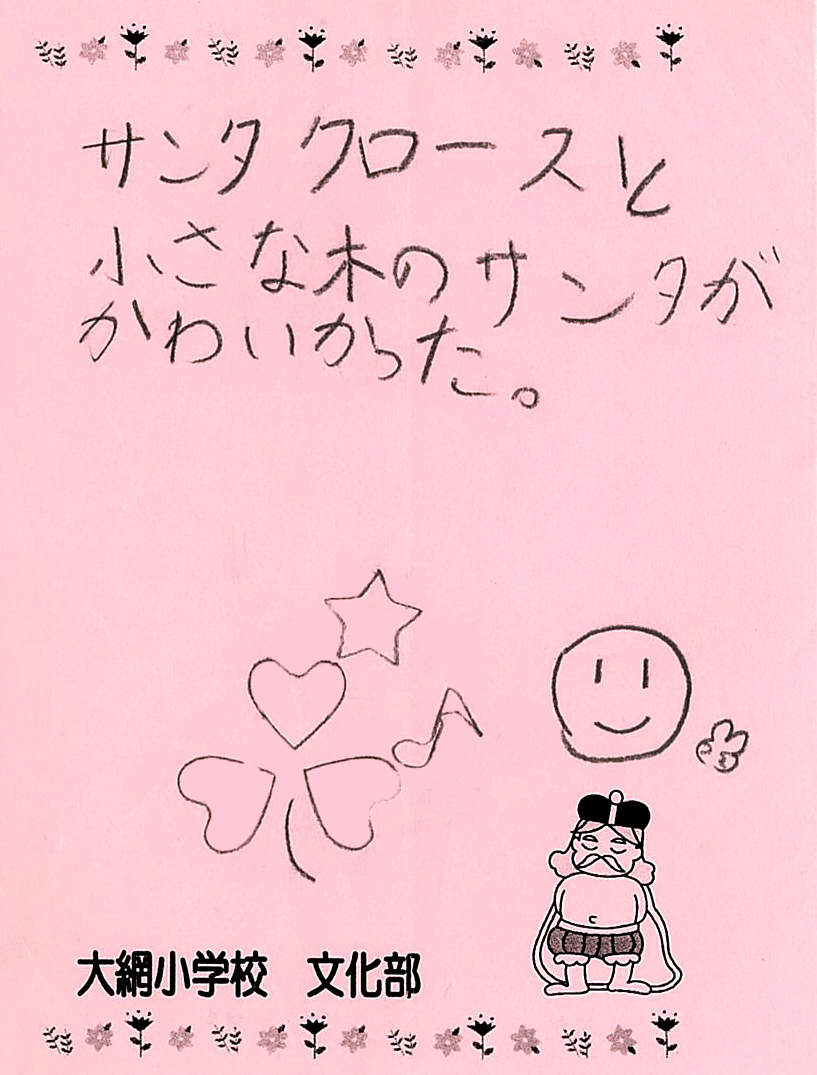 サンタクロースと
小さな木のサンタが
かわいかった。
大網小学校　文化部